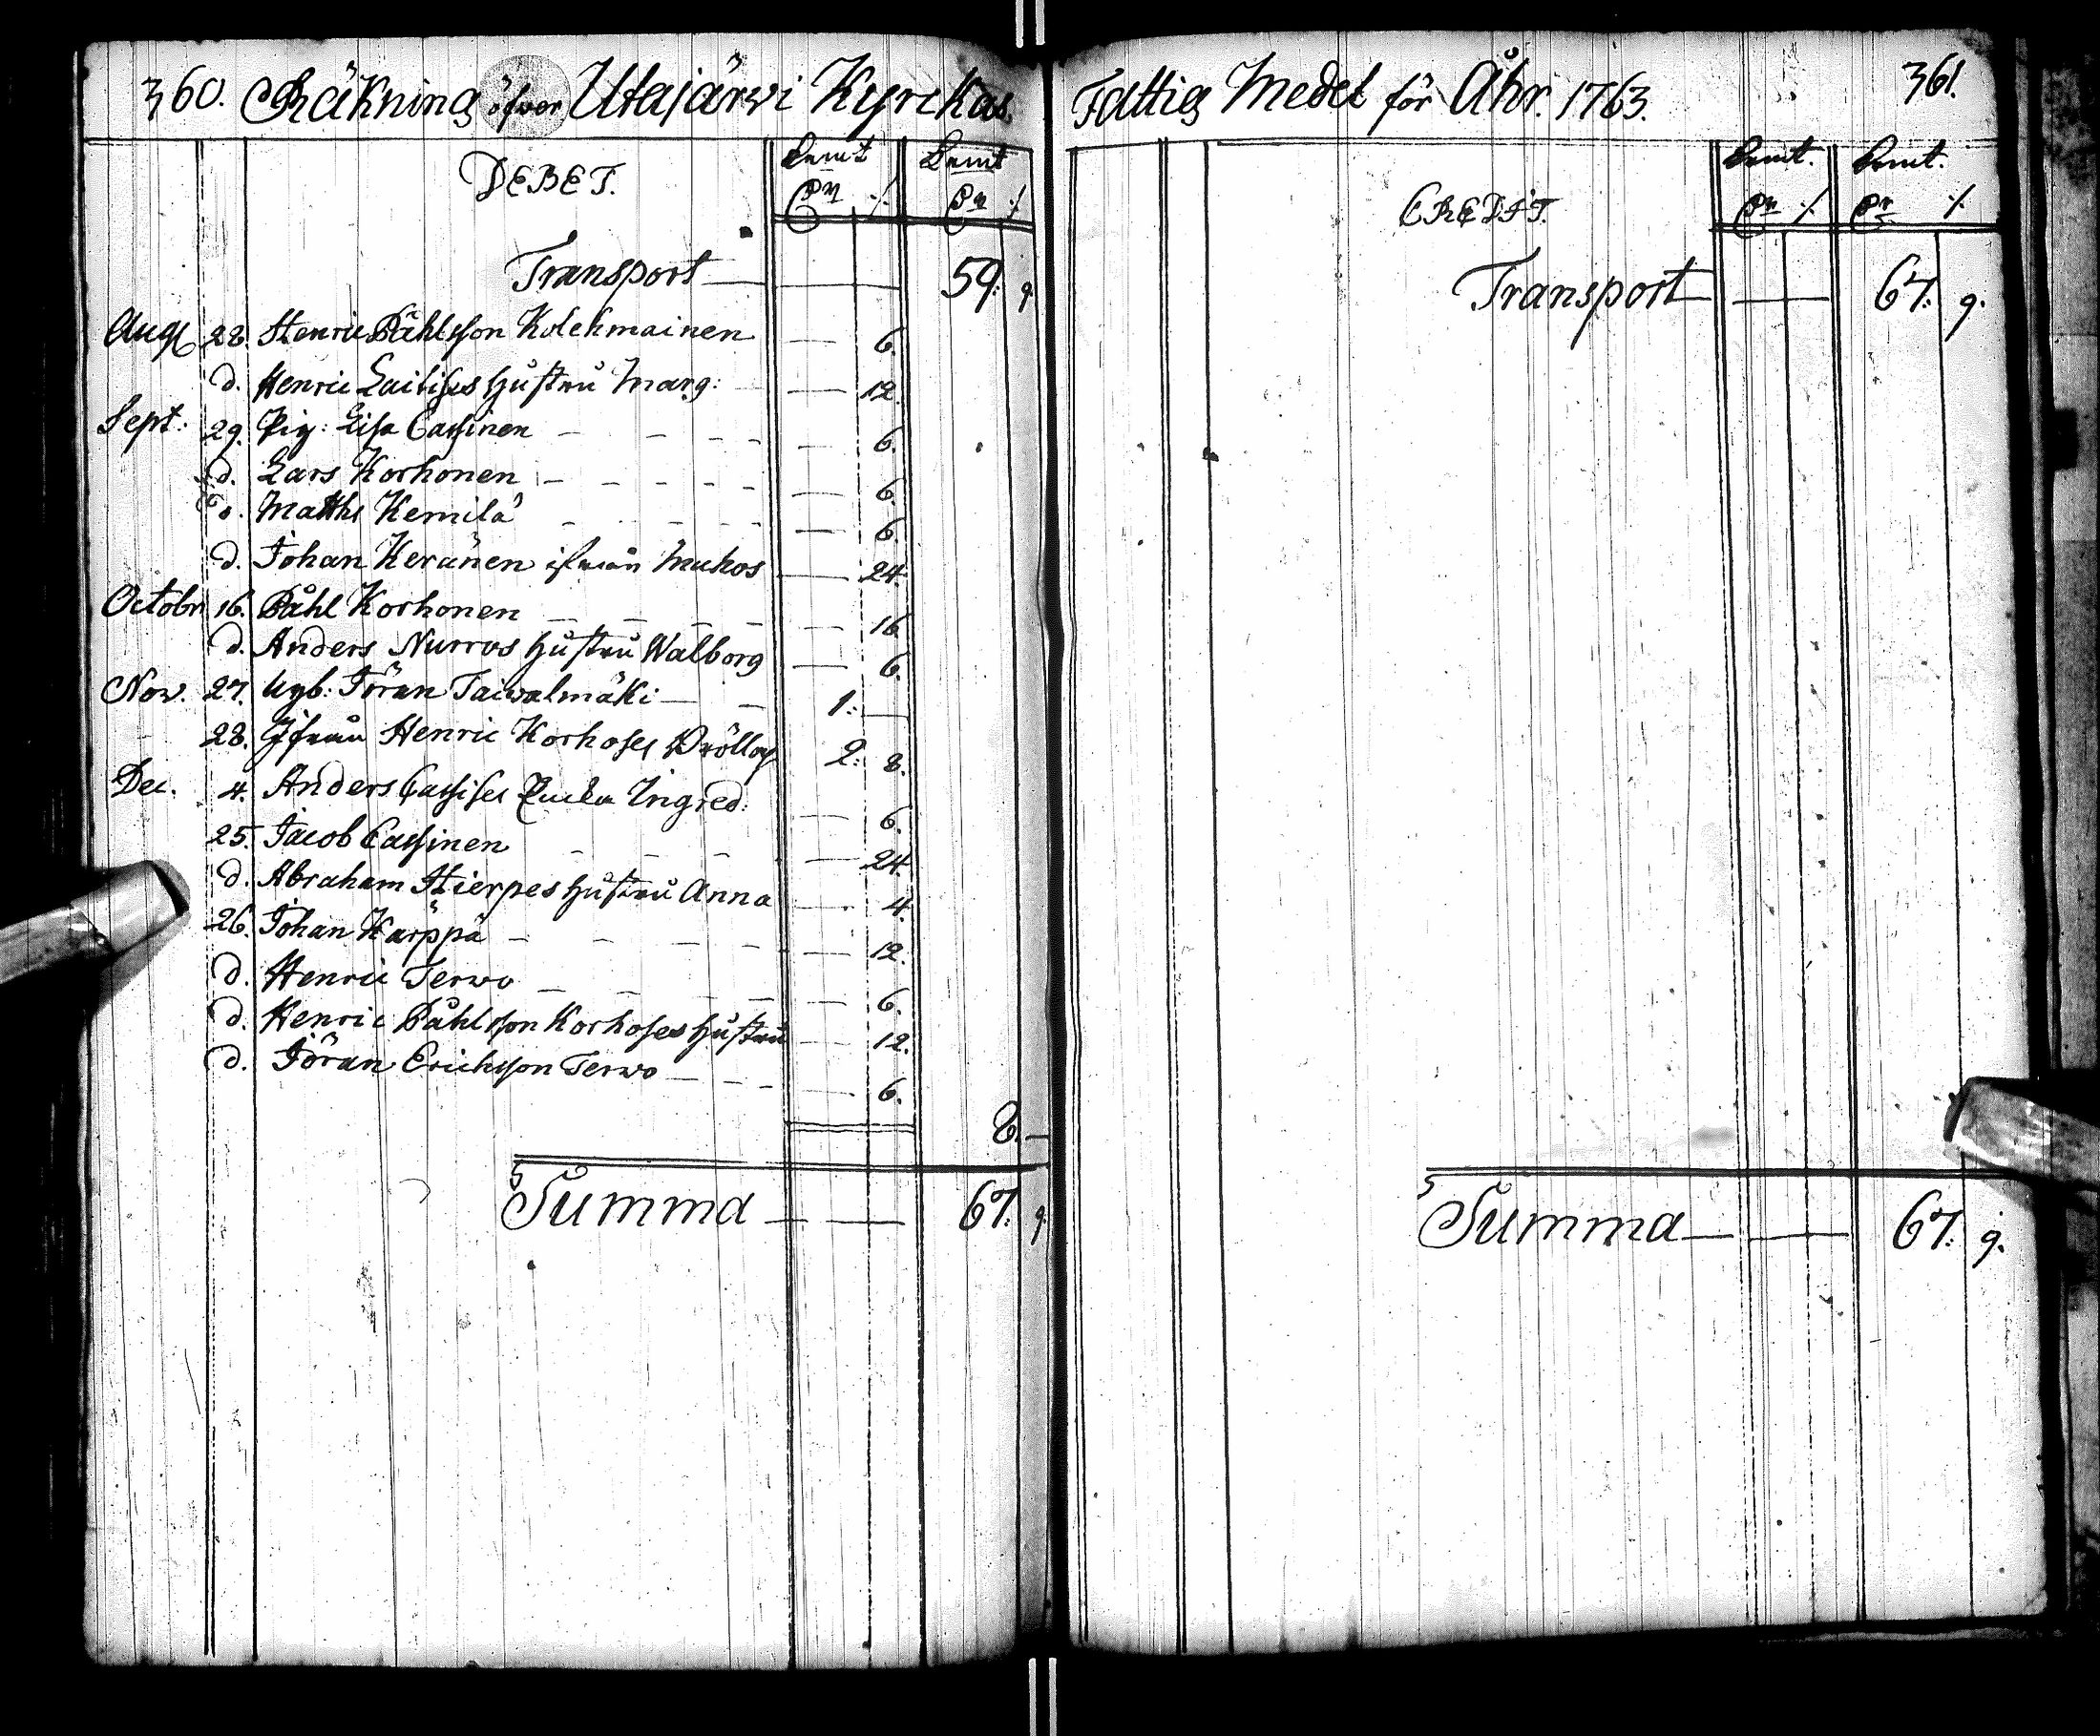 360. Räkning öfver Utajärwi Kyrckas
DEBET.
Dr mt Dr mt
Transport 59: 9
Aug 28. Henric Påhlsson Kolehmainen 6.
d. Henric Laitises Hustru Marg: 12.
Sept. 29. Pig: Lisa Cassinen 6.
d. Lars Korhonen 6.
d. Matths Kemilä 6.
d. Johan Keränen ifrån Muhos 24.
Octobr 16. Påhl Korhonen 16
d. Anders Nurros Hustru Walborg 6.
Nov. 27. Ugb: Jöran Taiwalmäki 1:
28. Ifrån Henric Korhoses Bröllop 2: 8.
Dec. 4. Anders Cassises Encka Ingred: 6.
25. Jacob Cassinen 24.
d. Abraham Stierpes Hustru Anna 4.
26. Johan Kärppä 12.
d. Henric Terwo 6.
d. Henric Påhlsson Korhoses Hustru 12.
d. Jöran Erichsson Terwo 6.
8.
Summa 67: 9.
Fattig Medel för Åhr. 1763. 361.
CREDIT.
Transport 67: 9.
Summa 67: 9.